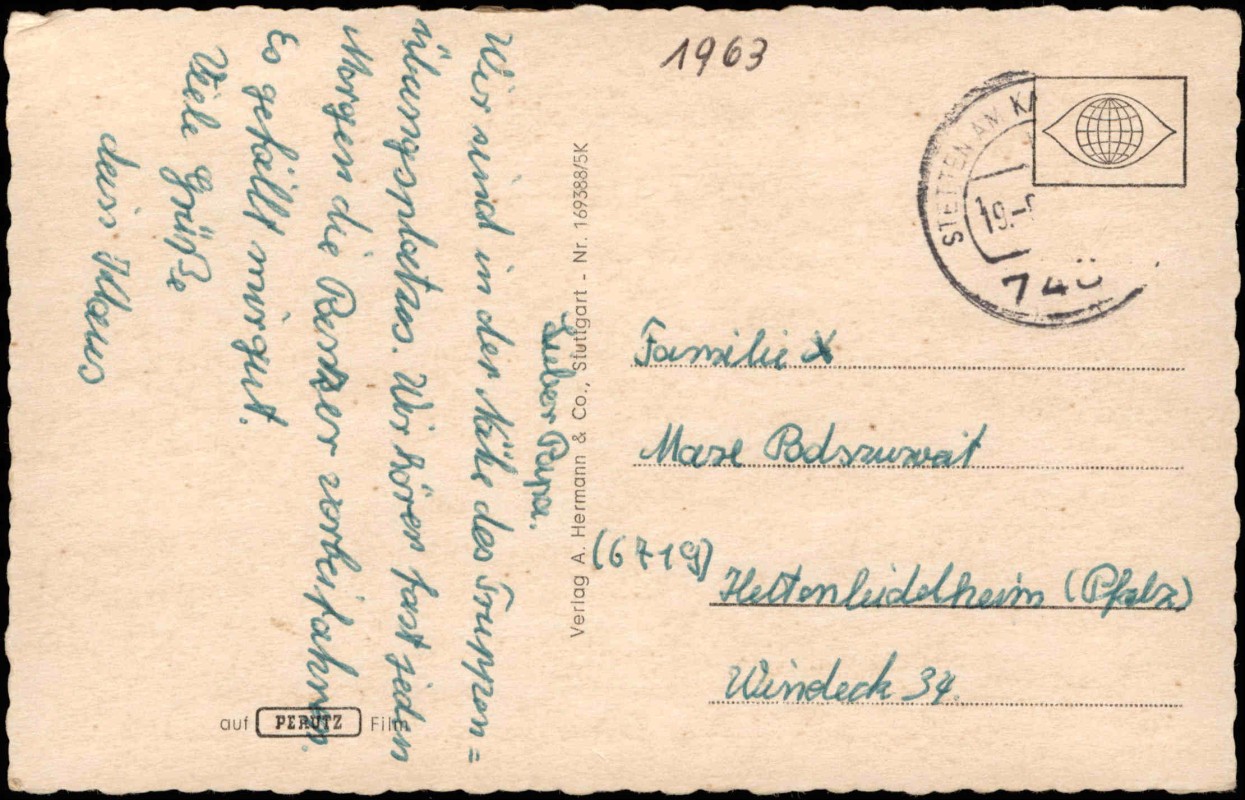 1963
STETTEN AM KA
19.-
740
Lieber Papa.
Wir sind in der Nähe des Truppen=
übungsplatzes. Wir hören fast jeden
Morgen die Panzer vorbeifahren.
Es gefällt mir gut.
Viele Grüße
dein Klaus
Verlag A. Hermann & Co., Stuttgart - Nr. 169388/5K
auf PERUTZ Film
Familie
Max Podszuweit
(6719) Hettenleidelheim (Pfalz)
Windeck 34.